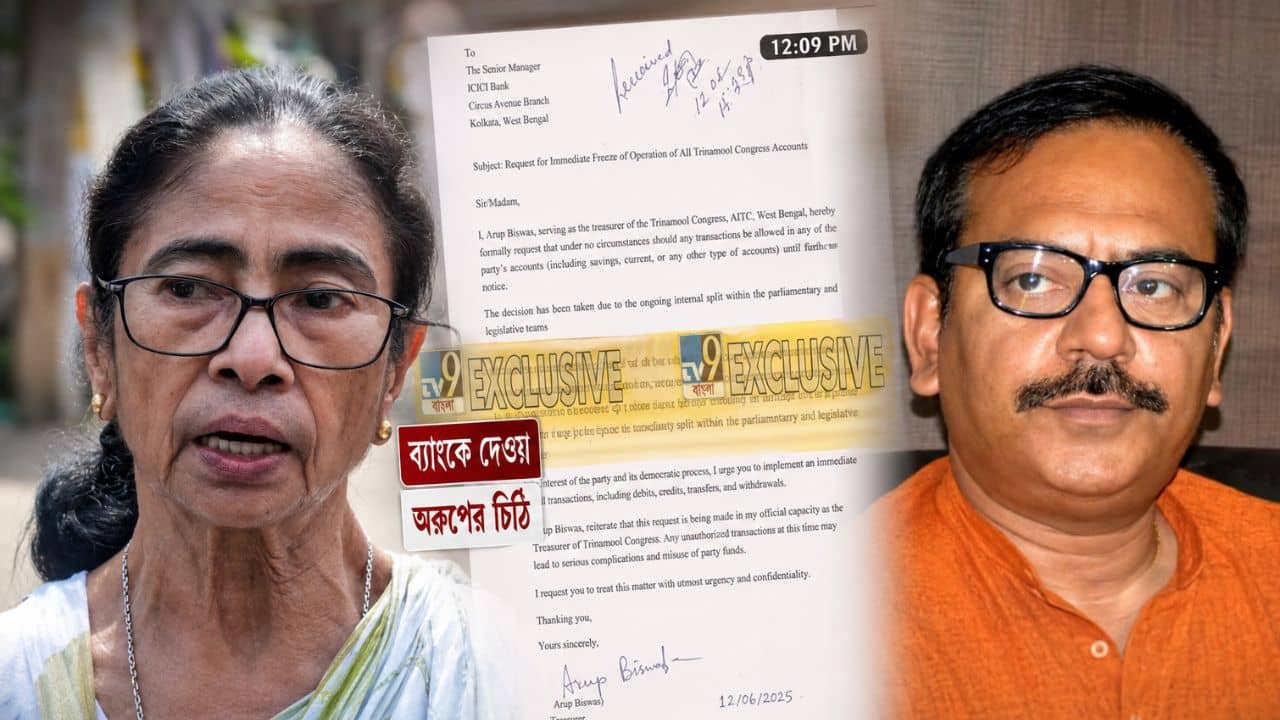 To
The Senior Manager
ICICI Bank
Circus Avenue Branch
Kolkata, West Bengal
Received
12:09 PM
Subject: Request for Immediate Freeze of Operation of All Trinamool Congress Accounts
Sir/Madam,
I, Arup Biswas, serving as the treasurer of the Trinamool Congress, AITC, West Bengal, hereby
formally request that under no circumstances should any transactions be allowed in any of the
party's accounts (including savings, current, or any other type of accounts) until further
notice.
The decision has been taken due to the ongoing internal split within the parliamentary and
legislative teams
TV9 বাংলা EXCLUSIVE
TV9 বাংলা EXCLUSIVE
split within the parliamntarry and legislative
ব্যাংকে দেওয়
অরুপের চিঠি
interest of the party and its democratic process, I urge you to implement an immediate
transactions, including debits, credits, transfers, and withdrawals.
Biswas, reiterate that this request is being made in my official capacity as the
Treasurer of Trinamool Congress. Any unauthorized transactions at this time may
lead to serious complications and misuse of party funds.
I request you to treat this matter with utmost urgency and confidentiality.
Thanking you,
Yours sincerely,
Arup Biswas
Arup Biswas)
12/06/2025